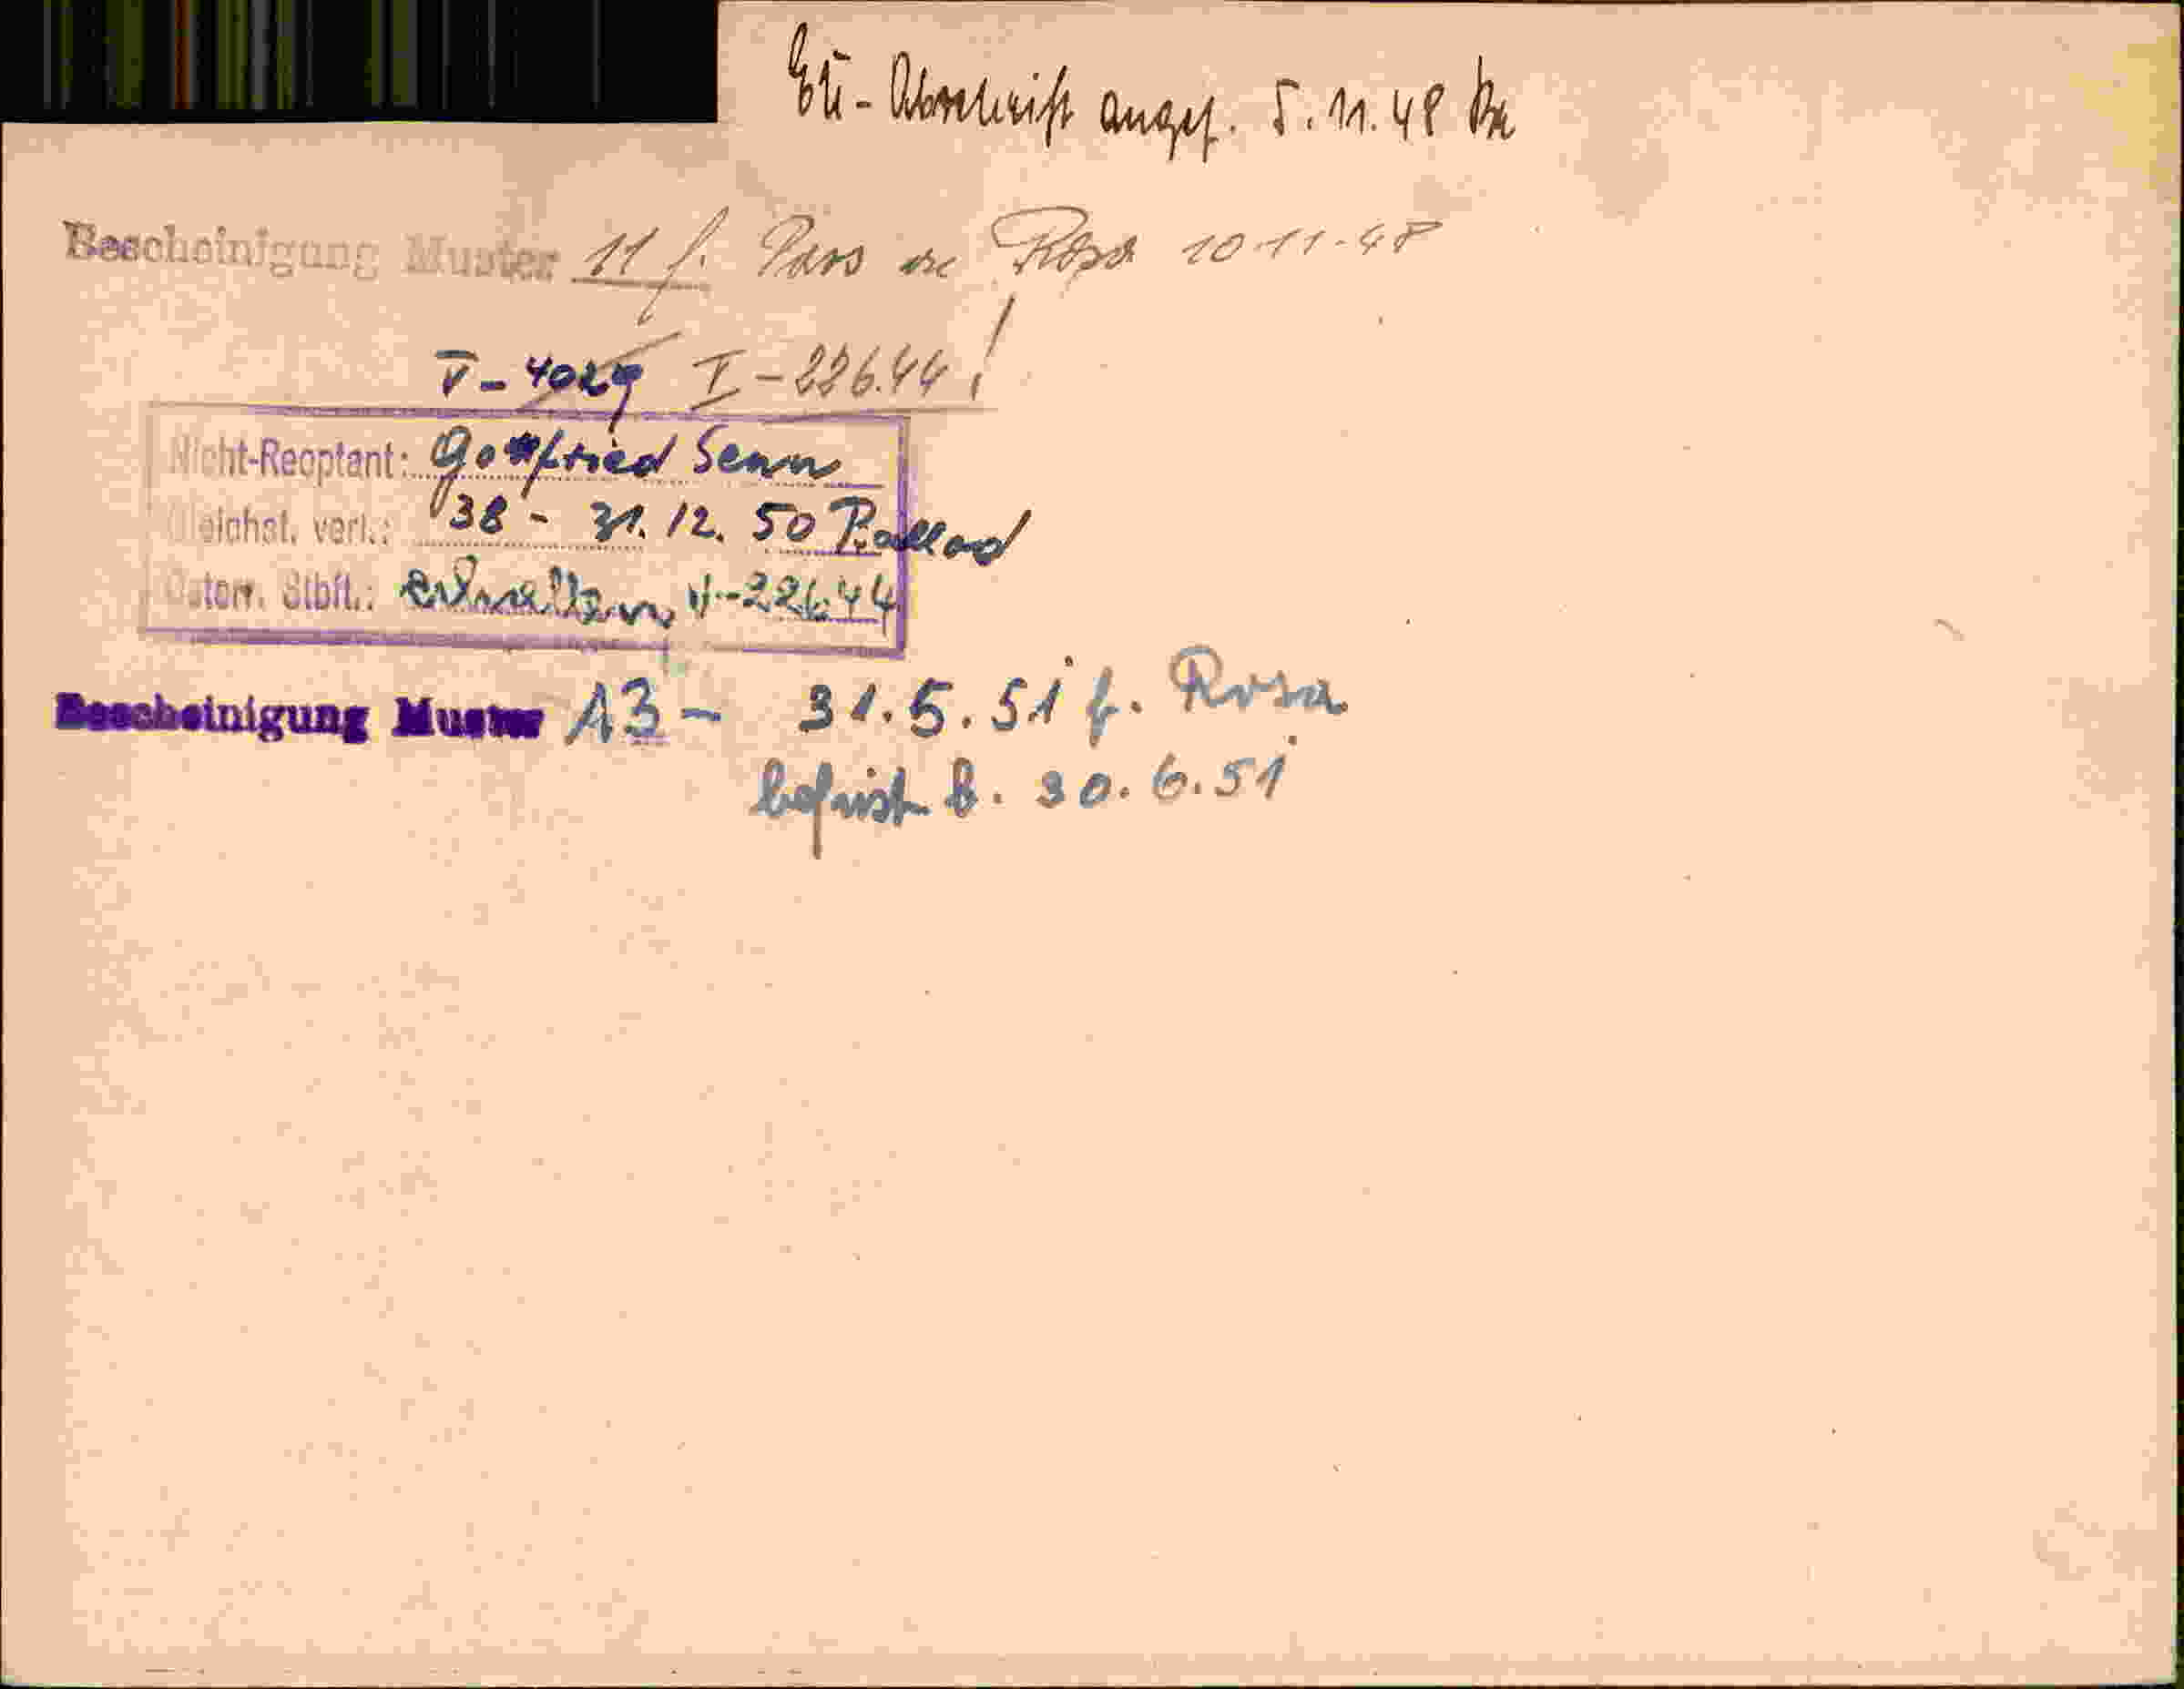 Stü-Abschrift angef. 5.11.48
Bescheinigung Muster 11 f. Pass Rosa 10.11.48
V-4029 I-226.44!
Nicht-Reoptant: Gottfried Senn
Gleichst. verl.: 38 - 31.12.50
Österr. Stbft.: V-226.44
Bescheinigung Muster A3 - 31.5.51 f. Rosa
befrist b. 30.6.51